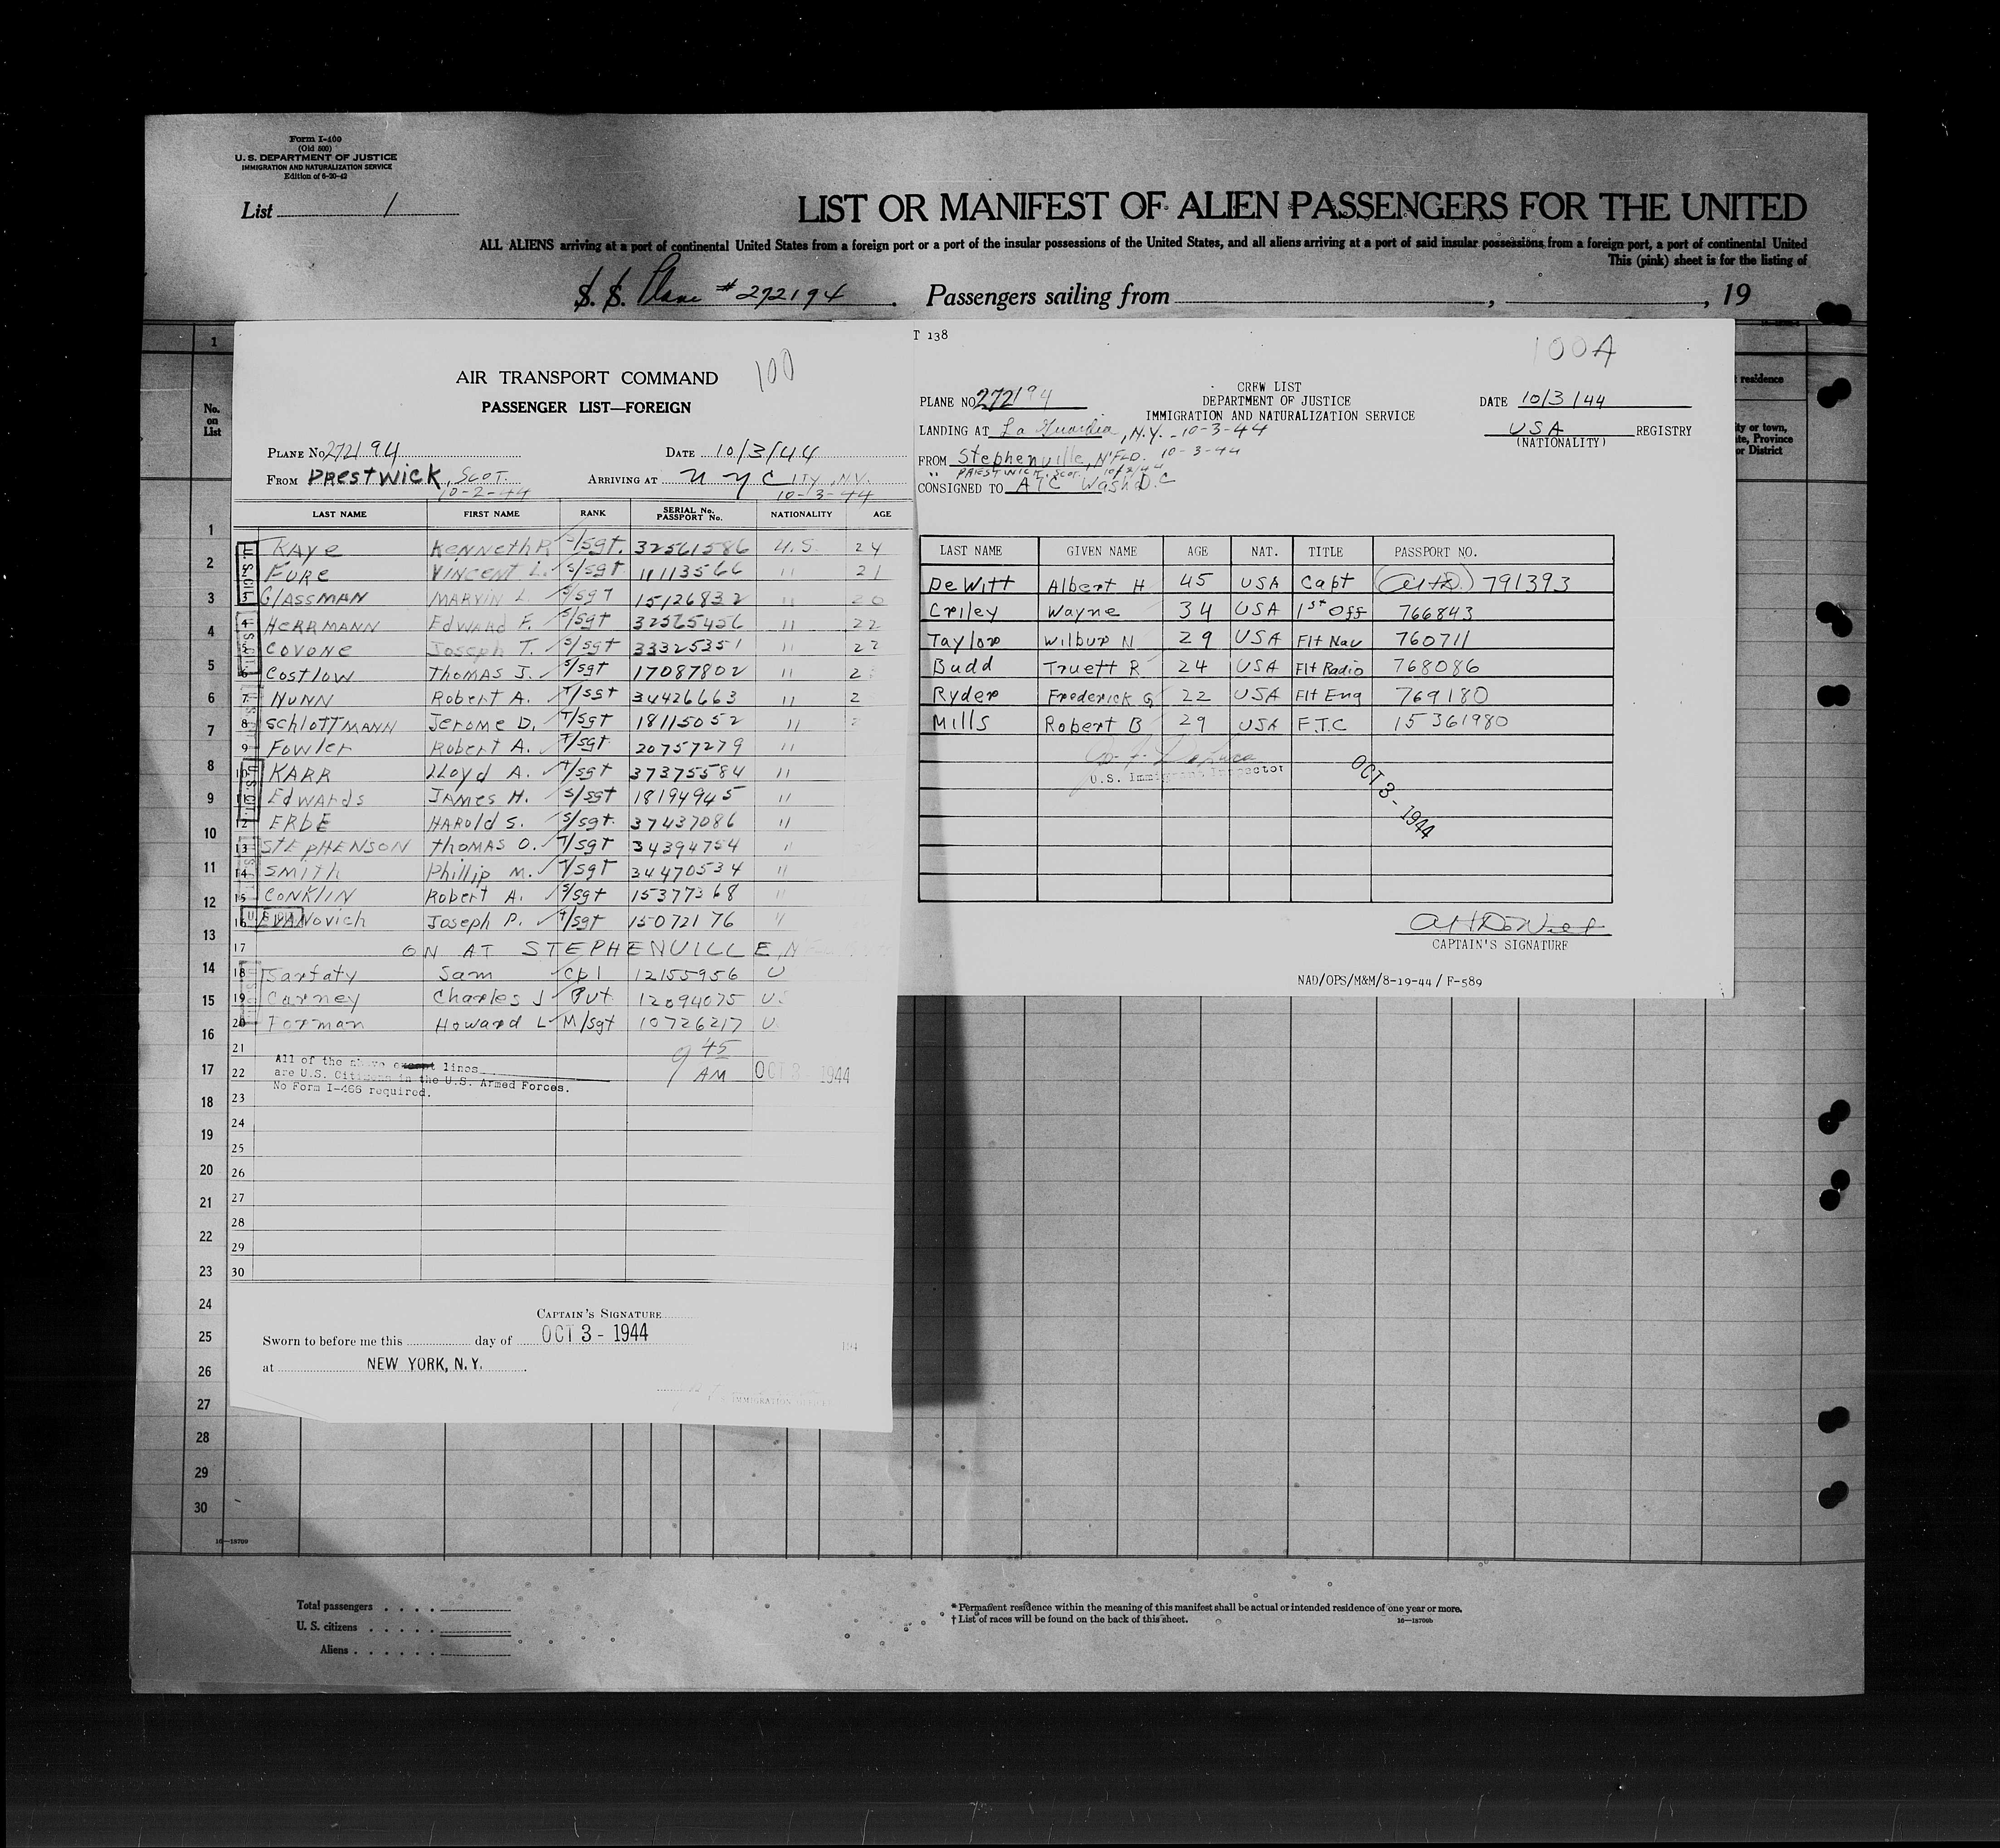 Form I-400
(Old 500)
U. S. DEPARTMENT OF JUSTICE
IMMIGRATION AND NATURALIZATION SERVICE
Edition of 6-20-42
List 1
LIST OR MANIFEST OF ALIEN PASSENGERS FOR THE UNITED
ALL ALIENS arriving at a port of continental United States from a foreign port or a port of the insular possessions of the United States, and all aliens arriving at a port of said insular possessions from a foreign port, a port of continental United
This (pink) sheet is for the listing of
S. S. Plane # 272194 . Passengers sailing from , , 19
1
No.
on
List
AIR TRANSPORT COMMAND 100
PASSENGER LIST—FOREIGN
PLANE No 272194 DATE 10/3/44
FROM PRESTWICK, SCOT. ARRIVING AT N Y CITY, N.Y.
10-2-44 10-3-44
LAST NAME FIRST NAME RANK SERIAL No. PASSPORT No. NATIONALITY AGE
KAYE KENNETH R S/Sgt. 32561586 U.S. 24
2 FURE VINCENT L. S/Sgt 11113566 " 21
3 GLASSMAN MARVIN L. S/Sgt 15126832 " 20
4 HERRMANN EdWARD F. S/Sgt 32565456 " 22
5 COVONE Joseph T. S/Sgt 33325351 " 22
6 COSTLOW THOMAS J. S/Sgt 17087802 " 2
7 NUNN Robert A. T/Sgt 34426663 " 2
8 SCHLOTTMANN Jerome D. T/Sgt 18115052 "
9 Fowler Robert A. T/Sgt 20757279 "
10 KARR LLoyd A. T/Sgt 37375584 "
EdWARds JAMES H. S/Sgt 18194945 "
12 ERBE HAROld S. S/Sgt. 37437086 "
13 STEPHENSON THOMAS O. T/Sgt 34394754 "
14 SMITH Phillip M. T/Sgt 34470534 "
15 CONKLIN Robert A. S/Sgt 15377368 "
16 EVANovich Joseph P. T/Sgt 15072176 "
17 ON AT STEPHENVILLE, N
18 Sarfaty Sam Cpl 12155956 U
19 Carney Charles J Pvt. 12094075 US
20 Forman Howard L M/Sgt 10726217 U.
21 9 45
22 AM OCT 3 1944
All of the above except lines
are U.S. Citizens in the U.S. Armed Forces.
No Form I-466 required.
23
24
25
26
27
28
29
30
CAPTAIN'S SIGNATURE
Sworn to before me this day of OCT 3 - 1944
at NEW YORK, N. Y.
T 138
100A
CREW LIST
PLANE NO 272194 DEPARTMENT OF JUSTICE DATE 10/3/44
IMMIGRATION AND NATURALIZATION SERVICE
LANDING AT La Guardia, N.Y. - 10-3-44 USA REGISTRY
(NATIONALITY)
FROM Stephenville, N'FLD. 10-3-44
" PRESTWICK, SCOT. 10/2/44
CONSIGNED TO ATC Wash D.C
LAST NAME GIVEN NAME AGE NAT. TITLE PASSPORT NO.
DeWitt Albert H 45 USA Capt 791393
Criley Wayne 34 USA 1st Off 766843
Taylor Wilbur N 29 USA Flt Nav 760711
Budd Truett R 24 USA Flt Radio 768086
Ryder Frederick G 22 USA Flt Eng 769180
Mills Robert B 29 USA F.T.C 15361980
U.S. Immigrant Inspector
OCT 3 - 1944
A H DeWitt
CAPTAIN'S SIGNATURE
NAD/OPS/M&M/8-19-44 / F-589
residence
ity or town,
te, Province
or District
1
2
3
4
5
6
7
8
9
10
11
12
13
14
15
16
17
18
19
20
21
22
23
24
25
26
27
28
29
30
16—18709
Total passengers . . . .
U. S. citizens . . . . .
Aliens . . . . . .
* Permanent residence within the meaning of this manifest shall be actual or intended residence of one year or more.
† List of races will be found on the back of this sheet. 16—18709b